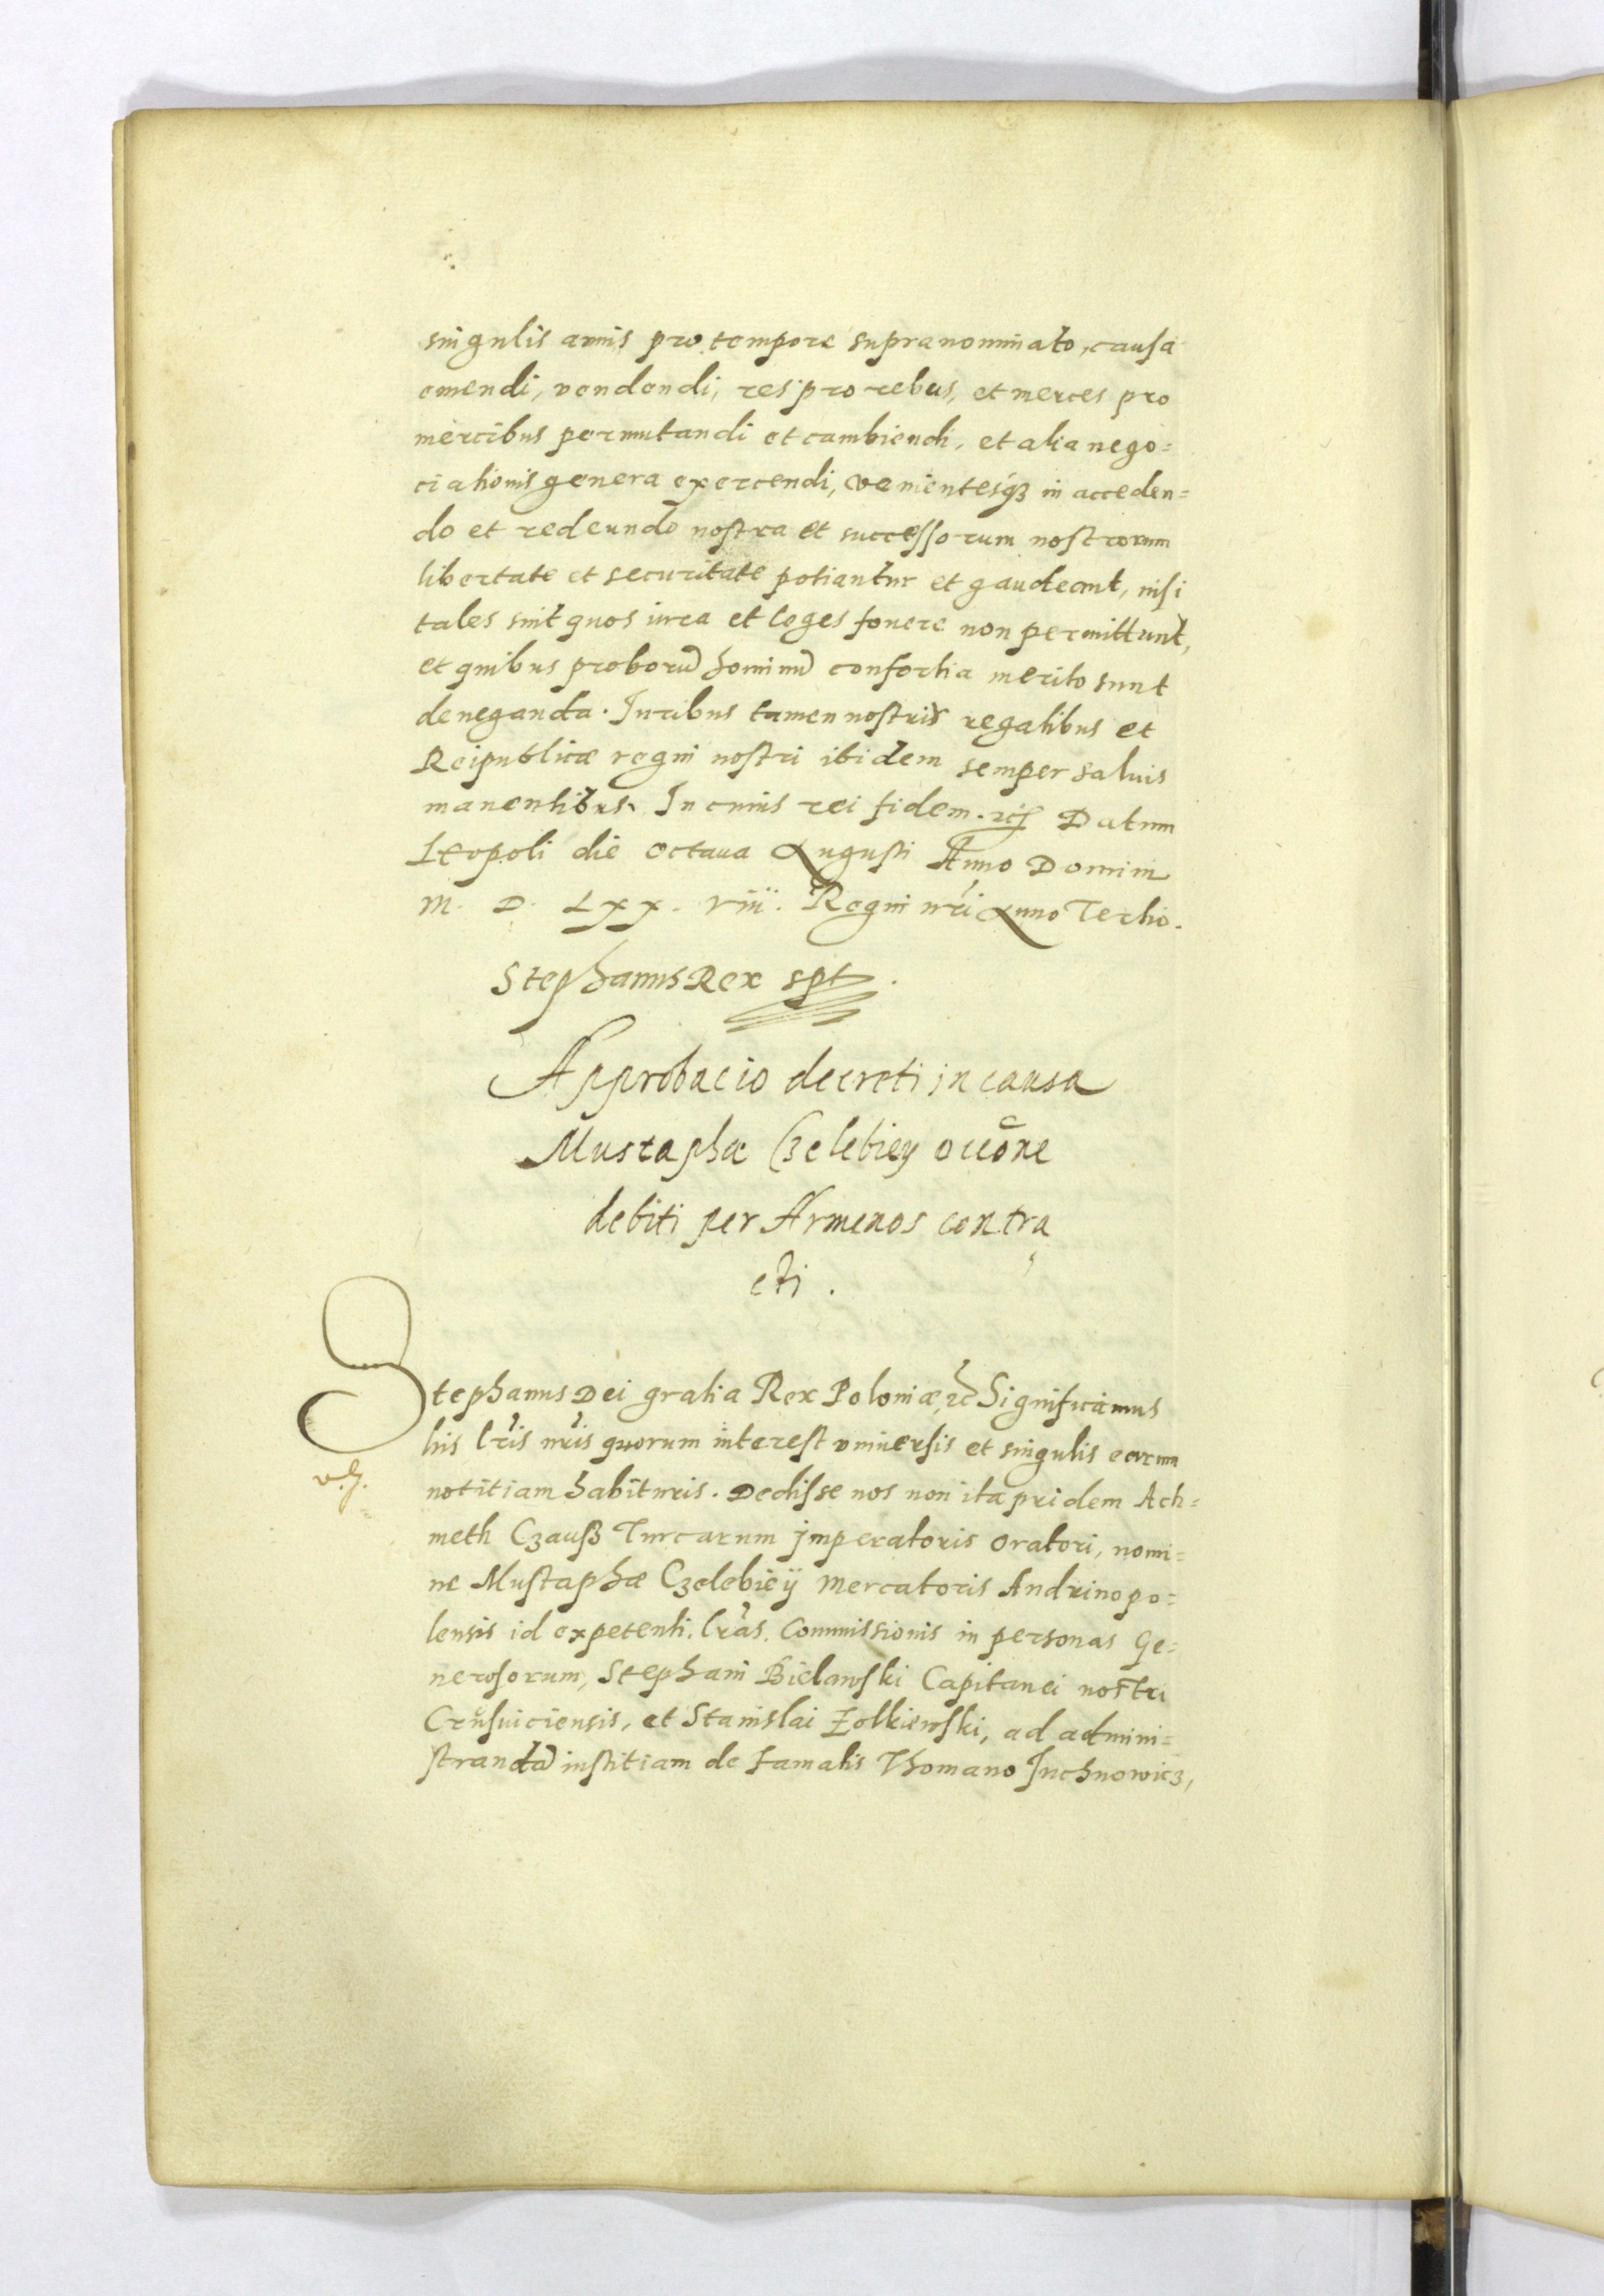 singulis annis pro tempore supranominato, causa
emendi, vendendi, res pro rebus, et merces pro
mercibus permutandi et cambiendi, et alia nego=
ciationis genera exercendi, venientesq3 in acceden=
do et redeundo nostra et successorum nostrorum
libertate et securitate potiantur et gaudeant, nisi
tales sint quos iura et leges fovere non permittunt,
et quibus proborū hominū consortia merito sunt
deneganda. Iuribus tamen nostris regalibus et
Reipublicæ regni nostri ibidem semper salvis
manentibus. In cuius rei fidem. etc Datum
Leopoli die octaua Augusti Anno Domini
M. D. Lxx. viii. Regni nri Anno Tertio.
Stephanus Rex spt.
Approbacio decreti in causa
Mustaphæ Czelebiey occōne
debiti per Armenos contra
cti.
Stephanus Dei gratia Rex Poloniæ, etc Significamus
his lris nris quorum interest vniuersis et singulis earum
notitiam habituris. Dedisse nos non ita pridem Ach=
meth Czauß Turcarum jmperatoris oratori, nomi=
ne Mustaphæ Czelebieÿ mercatoris Andrinopo=
lensis id expetenti, lras. Commissionis in personas Ge=
nerosorum, Stephani Bielawski Capitanei nostri
Crusuiciensis, et Stanislai Żolkiewski, ad admini=
strandā iustitiam de famatis Thomano Juchnowicz,